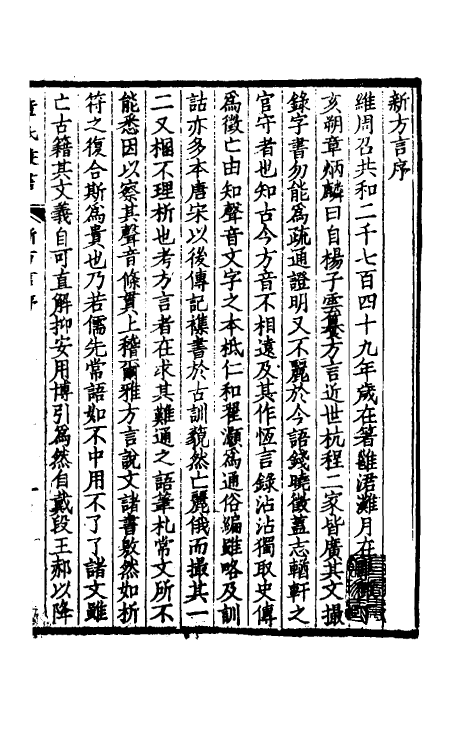 新方言序
維周召共和二千七百四十九年歲在箸雝涒灘月在
亥朔章炳麟曰自楊子雲纂方言近世杭程二家皆廣其文撮
錄字書勿能爲疏通證明又不麗於今語錢曉徵蓋志輶軒之
官守者也知古今方音不相遠及其作恆言錄沾沾獨取史傳
爲徵亡由知聲音文字之本柢仁和翟灝爲通俗編雖略及訓
詁亦多本唐宋以後傳記襍書於古訓藐然亡麗俄而撮其一
二又棞不理析也考方言者在求其難通之語筆札常文所不
能悉因以察其聲音條貫上稽爾雅方言說文諸書敫然如析
符之復合斯爲貴也乃若儒先常語如不中用不了了諸文雖
亡古籍其文義自可直解抑安用博引爲然自戴段王郝以降
章氏叢書
新方言序
一